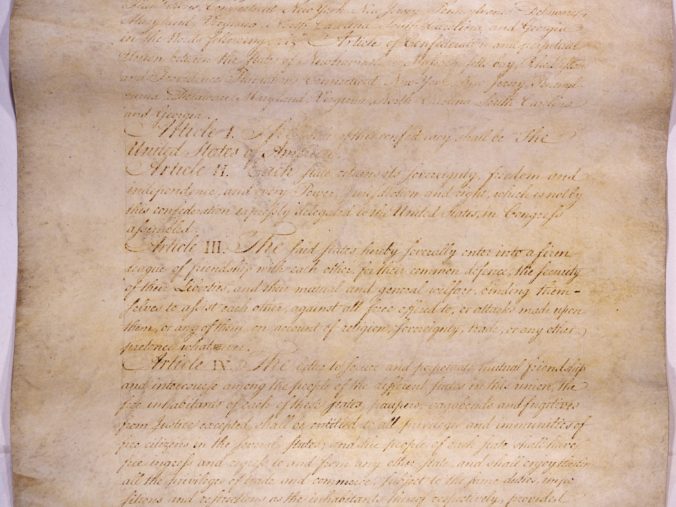 Plantations, Connecticut, New York, New Jersey, Pennsylvania, Delaware,
Maryland, Virginia, North Carolina, South Carolina, and Georgia
in the Words following, viz. Articles of Confederation and perpetual
Union between the States of Newhampshire, Massachusetts bay, Rhodeisland
and Providence Plantations, Connecticut, New York, New Jersey, Pennsyl-
vania, Delaware, Maryland, Virginia, North Carolina, South Carolina
and Georgia.
Article I. The Stile of this confederacy shall be "The
United States of America."
Article II. Each state retains its sovereignty, freedom and
independence, and every Power, Jurisdiction and right, which is not by
this confederation expressly delegated to the United States, in Congress
assembled.
Article III. The said states hereby severally enter into a firm
league of friendship with each other, for their common defence, the security
of their Liberties, and their mutual and general welfare, binding them-
selves to assist each other, against all force offered to, or attacks made upon
them, or any of them, on account of religion, sovereignty, trade, or any other
pretence whatever.
Article IV. The better to secure and perpetuate mutual friendship
and intercourse among the people of the different states in this union, the
free inhabitants of each of these states, paupers, vagabonds and fugitives
from Justice excepted, shall be entitled to all privileges and immunities of
free citizens in the several states; and the people of each state shall have
free ingress and regress to and from any other state, and shall enjoy therein
all the privileges of trade and commerce, subject to the same duties, impo
sitions and restrictions as the inhabitants thereof respectively, provided